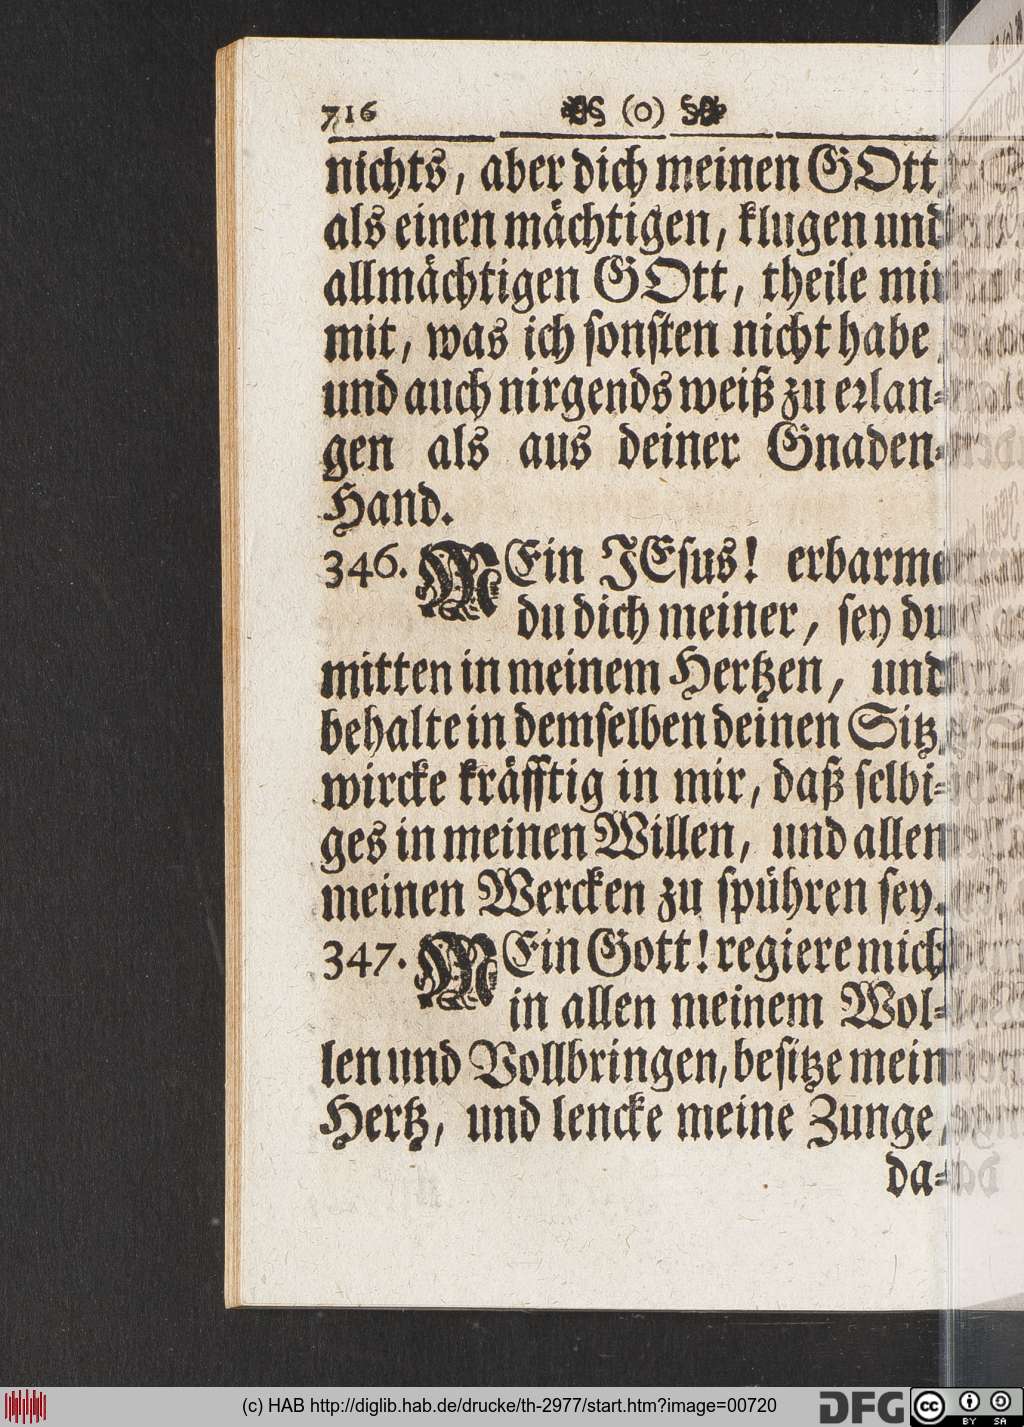 716 (o)
nichts, aber dich meinen GOtt
als einen mächtigen, klugen und
allmächtigen GOtt, theile mir
mit, was ich sonsten nicht habe
und auch nirgends weiß zu erlan-
gen als aus deiner Gnaden-
Hand.
346. MEin JEsus! erbarme
du dich meiner, sey du
mitten in meinem Hertzen, und
behalte in demselben deinen Sitz
wircke kräfftig in mir, daß selbi-
ges in meinen Willen, und allen
meinen Wercken zu spühren sey.
347. MEin Gott! regiere mich
in allen meinem Wol-
len und Vollbringen, besitze mein
Hertz, und lencke meine Zunge,
da-
(c) HAB http://diglib.hab.de/drucke/th-2977/start.htm?image=00720
DFG
cc BY SA